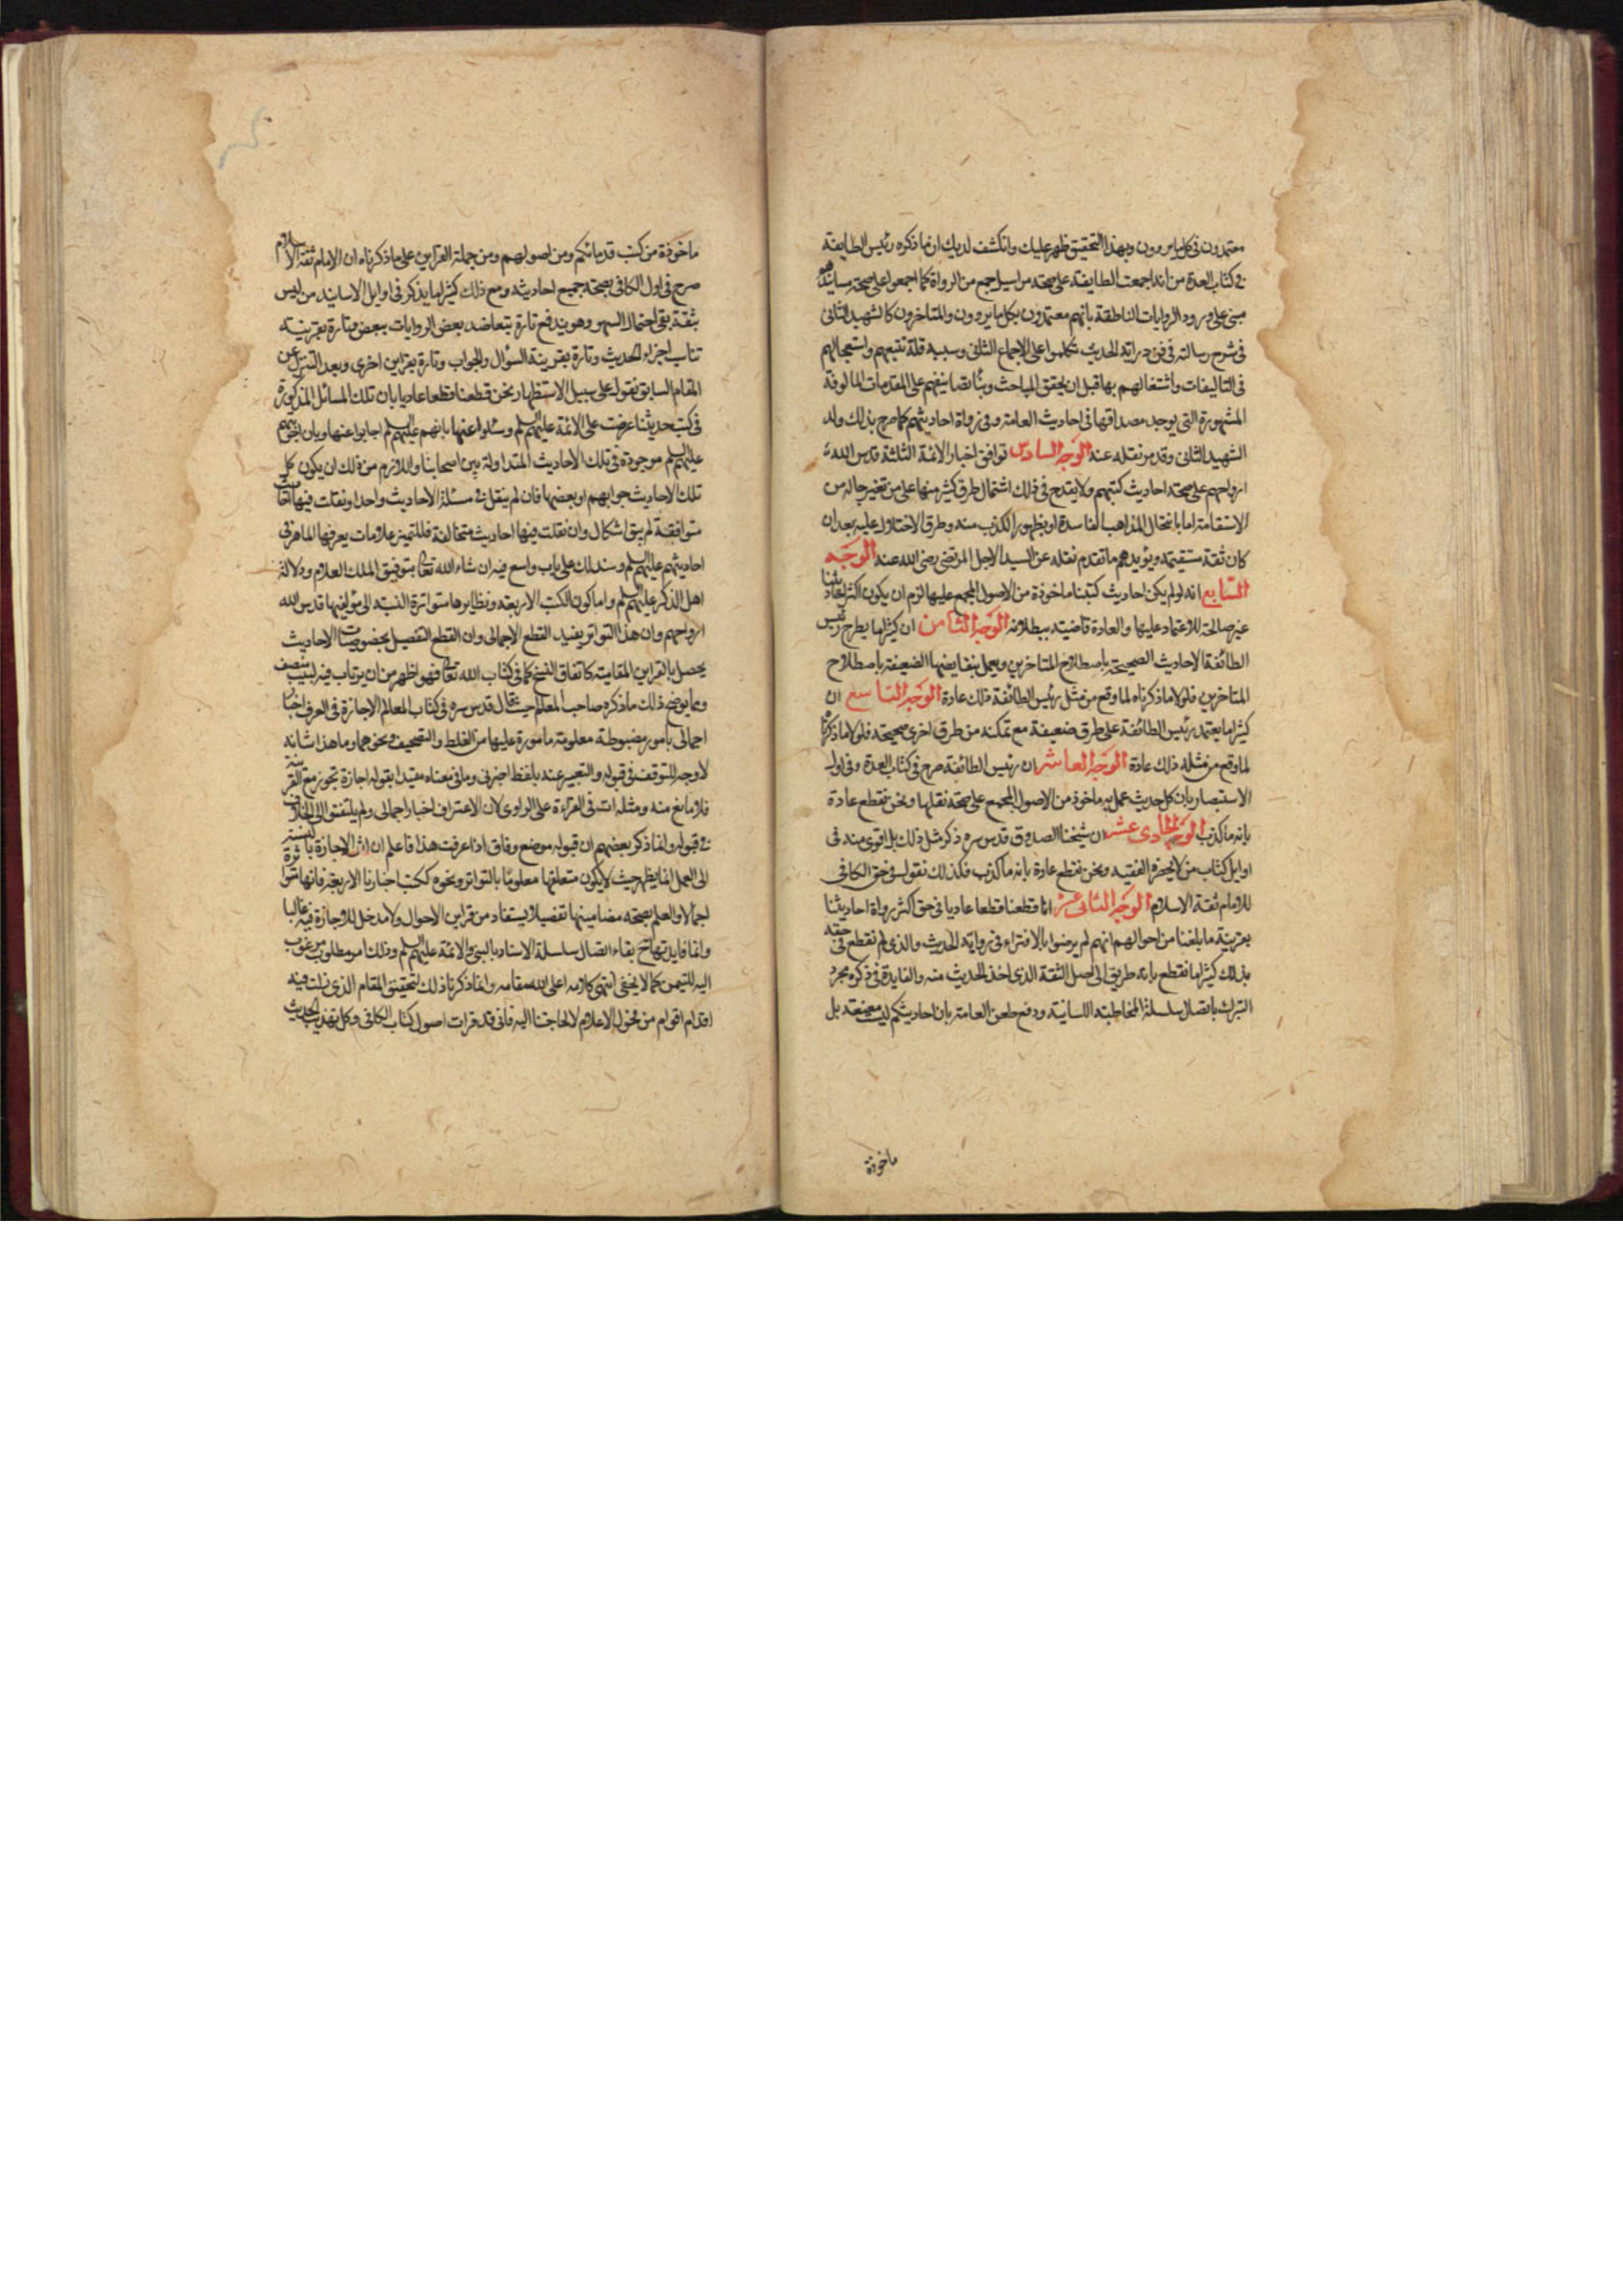 معتمدون في كل ما يروون وبهذا التحقيق ظهر عليك وانكشف لديك ان ما ذكره رئيس الطايفة
في كتاب العدة من انه اجمعت الطايفة على صحة مراسيل جمع من الرواة كما اجمعوا على صحة مسانيدهم
مبني على ورود الروايات الناطقة بانهم معتمدون بكل ما يروون والمتاخرون كالشهيد الثاني
في شرح رسالته في فن دراية الحديث تكلموا على الاجماع الثاني وسببه قلة تتبعهم واستعجالهم
في التاليفات واشتغالهم بها قبل ان يحقق المباحث وبناء تصانيفهم على المقدمات المالوفة
المشهورة التي يوجد مصداقها في احاديث العامة وفي رواة احاديثهم كما صرح بذلك ولد
الشهيد الثاني وقد مر نقله عنه الوجه السادس توافق اخبار الائمة الثلثة قدس الله
ارواحهم على صحة احاديث كتبهم ولا يقدح في ذلك اشتمال طرق كثير منها على من تغير حاله من
الاستقامة اما بانتحال المذاهب الفاسدة او بظهور الكذب منه وطرق الاختلال عليه بعد ان
كان ثقة مستقيمة ويؤيدهم ما تقدم نقله عن السيد الاجل المرتضى رضي الله عنه الوجه
السابع انه لو لم يكن احاديث كتبنا ماخوذة من الاصول المجمع عليها لزم ان يكون اكثر احاديثنا
غير صالحة للاعتماد عليها والعادة قاضية ببطلانه الوجه الثامن ان كثيرا ما يطرح رئيس
الطائفة الاحاديث الصحيحة باصطلاح المتاخرين ويعمل بنقايضها الضعيفة باصطلاح
المتاخرين فلولا ما ذكرناه لما وقع من مثل رئيس الطائفة ذلك عادة الوجه التاسع ان
كثيرا ما يعتمد رئيس الطائفة على طرق ضعيفة مع تمكنه من طرق اخرى صحيحة فلولا ما ذكرناه
لما وقع من مثله ذلك عادة الوجه العاشر ان رئيس الطائفة صرح في كتاب العدة وفي اول
الاستبصار بان كل حديث عمل به ماخوذ من الاصول المجمع على صحة نقلها ونحن نقطع عادة
بانه ما كذب الوجه الحادي عشر ان شيخنا الصدوق قدس سره ذكر مثل ذلك بل اقوى منه في
اوايل كتاب من لا يحضره الفقيه ونحن نقطع عادة بانه ما كذب فكذلك نقول في حق الكافي
للامام ثقة الاسلام الوجه الثاني عشر انا قطعنا قطعا عاديا في حق اكثر رواة احاديثنا
بقرينة ما بلغنا من احوالهم انهم لم يرضوا بالافتراء في رواية الحديث والذي لم نقطع في حقه
بذلك كثيرا ما نقطع بانه طريق الى اصل الثقة الذي اخذ الحديث منه والفايدة في ذكره مجرد
التبرك باتصال سلسلة المخاطبة اللسانية ودفع طعن العامة بان احاديثكم ليست معنعنة بل
ماخوذة
ماخوذة من كتب قدمائكم ومن اصولهم ومن جملة القراين على ما ذكرناه ان الامام ثقة الاسلام
صرح في اول الكافي بصحة جميع احاديثه ومع ذلك كثيرا ما يذكر في اوايل الاسانيد من ليس
بثقة بقي احتمال السهو وهو يندفع تارة بتعاضد بعض الروايات ببعض وتارة بقرينة
تناسب اجزاء الحديث وتارة بقرينة السؤال والجواب وتارة بقراين اخرى وبعد التنزل عن
المقام السابق نقول على سبيل الاستظهار نحن قطعنا قطعا عاديا بان تلك المسائل المذكورة
في كتب حديثنا عرضت على الائمة عليهم السلم وسئلوا عنها بانهم عليهم السلم اجابوا عنها وبان اجوبتهم
عليهم السلم موجودة في تلك الاحاديث المتداولة بين اصحابنا واللازم من ذلك ان يكون كل
تلك الاحاديث جوابهم او بعضها فان لم ينقل في مسئلة الاحاديث واحدا ونقلت فيها احاديث
متوافقة لم يبق اشكال وان نقلت فيها احاديث متخالفة فللتميز علامات يعرفها الماهر في
احاديثهم عليهم السلم وسندلك على باب واسع فيه ان شاء الله تعالى بتوفيق الملك العلام ودلالة
اهل الذكر عليهم السلم واما كون الكتب الاربعة ونظايرها متواترة النسبة الى مؤلفيها قدس الله
ارواحهم وان هذا التواتر يفيد القطع الاجمالي وان القطع التفصيل بخصوصيات الاحاديث
يحصل بالقراين المقامية كاتفاق النسخ كما في كتاب الله تعالى فهو اظهر من ان يرتاب فيه لبيب منصف
ومما يوضح ذلك ما ذكره صاحب المعالم حيث قال قدس سره في كتاب المعالم الاجازة في العرف اخبار
اجمالي بامور مضبوطة معلومة مامورة عليها من الغلط والتصحيف ونحوهما وما هذا شانه
لا وجه للتوقف في قبوله والتعبير عنه بلفظ اخبرني وما في معناه مقيدا بقوله اجازة تجوز مع القرينة
فلا مانع منه ومثله ات في القراءة على الراوي لان الاعتراف اخبار اجمالي ولم يلتفتوا الى الخلاف
في قبوله وانما ذكر بعضهم ان قبوله موضع وفاق اذا عرفت هذا فاعلم ان اثر الاجازة بالنسبة
الى العمل انما يظهر حيث لا يكون متعلقها معلوما بالتواتر ونحوه ككتب اخبارنا الاربعة فانها متواترة
اجمالا والعلم بصحة مضامينها تفصيلا يستفاد من قراين الاحوال ولا مدخل للاجازة فيه غالبا
وانما فايدتها ح بقاء اتصال سلسلة الاسناد بالنبي والائمة عليهم السلم وذلك امر مطلوب مرغوب
اليه للتيمن كما لا يخفى انتهى كلامه اعلى الله مقامه وانما ذكرنا ذلك لتحقيق المقام الذي زلت فيه
اقدام اقوام من فحول الاعلام لا لحاجتنا اليه فاني قد قرات اصول كتاب الكافي وكل تهذيب الحديث